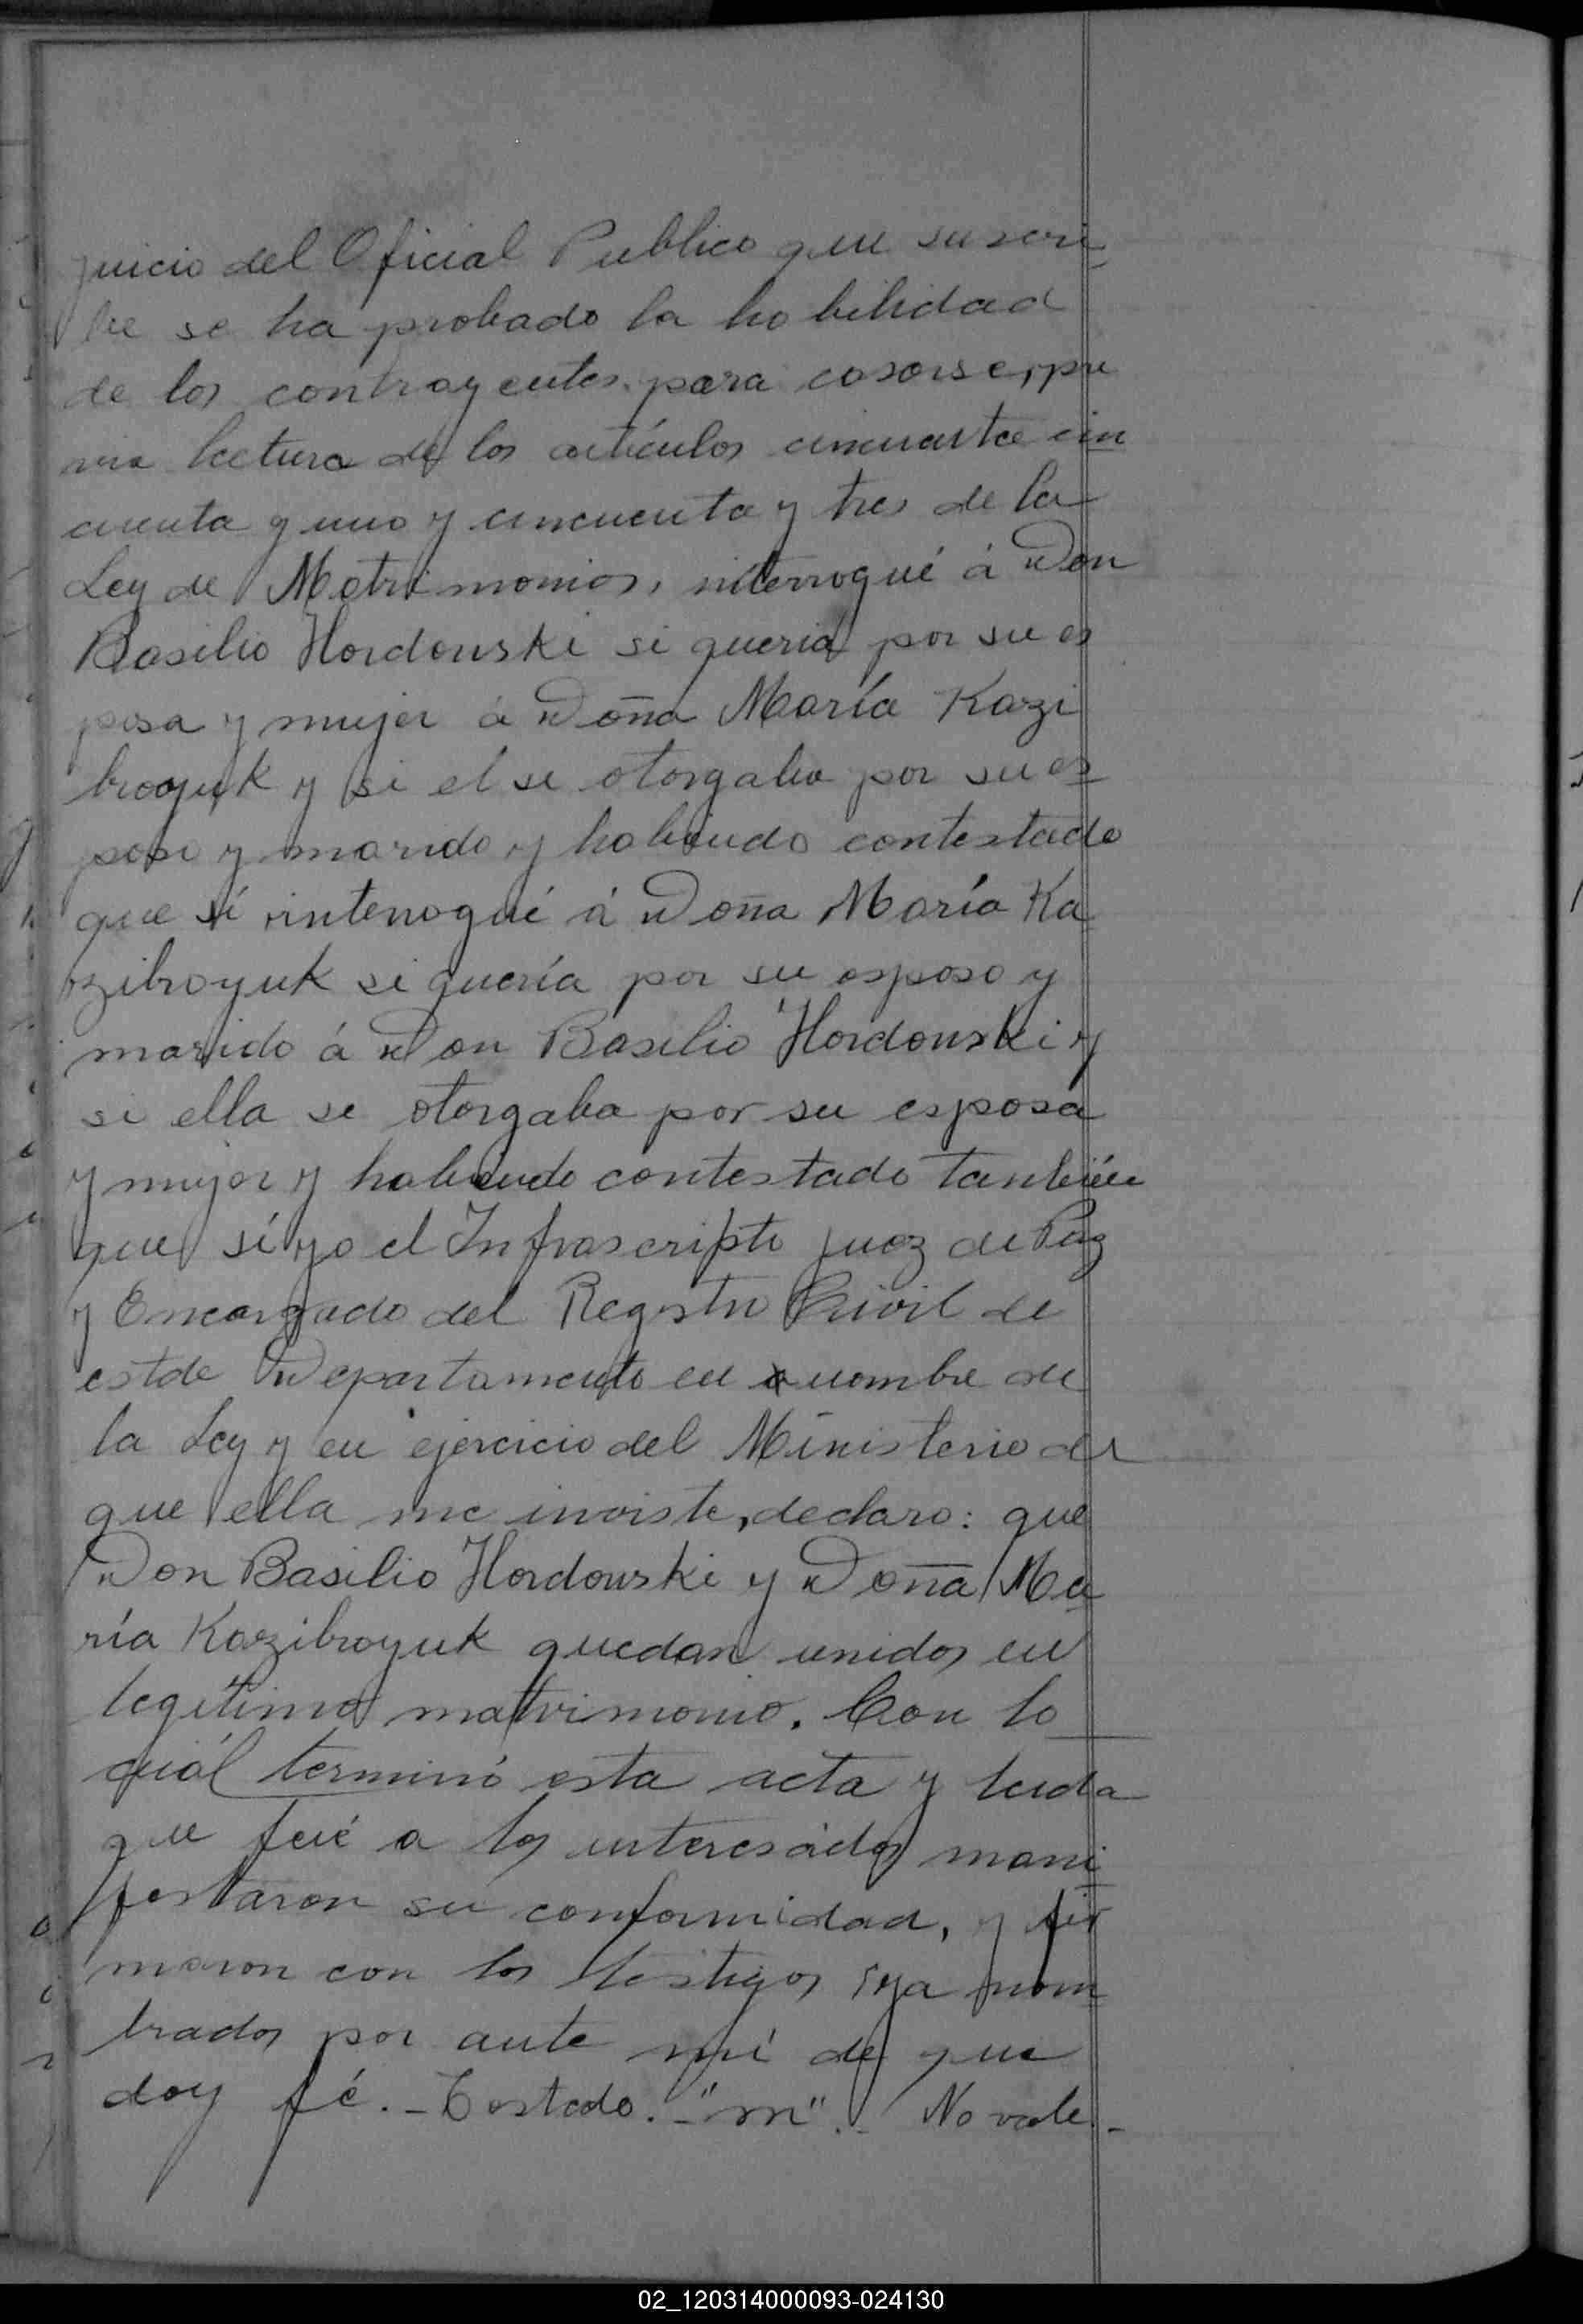 juicio del Oficial Publico que suscri
be se ha probado la habilidad
de los contrayentes para casarse, pre
via lectura de los artículos cincuenta cin
cuenta y uno y cincuenta y tres de la
Ley de Matrimonios, interrogué á Don
Basilio Hordowski si queria por su es
posa y mujer á Doña María Kazi
broyuk y si el se otorgaba por su es
poso y marido y habiendo contestado
que sí interrogué á Doña María Ka
zibroyuk si quería por su esposo y
marido á Don Basilio Hordowski y
si ella se otorgaba por su esposa
y mujer y habiendo contestado también
que sí yo el Infrascripto Juez de Paz
y Encargado del Registro Civil de
este Departamento en nombre de
la Ley y en ejercicio del Ministerio de
que ella me inviste, declaro: que
Don Basilio Hordowski y Doña Ma
ría Kazibroyuk quedan unidos en
legítimo matrimonio. Con lo
cuál terminó esta acta y leida
que fué a los interesados mani
festaron su conformidad, y fir
maron con los testigos ya nom
brados por ante mí de que
doy fé. - Testado. - "m". - No vale. -
02_120314000093-024130